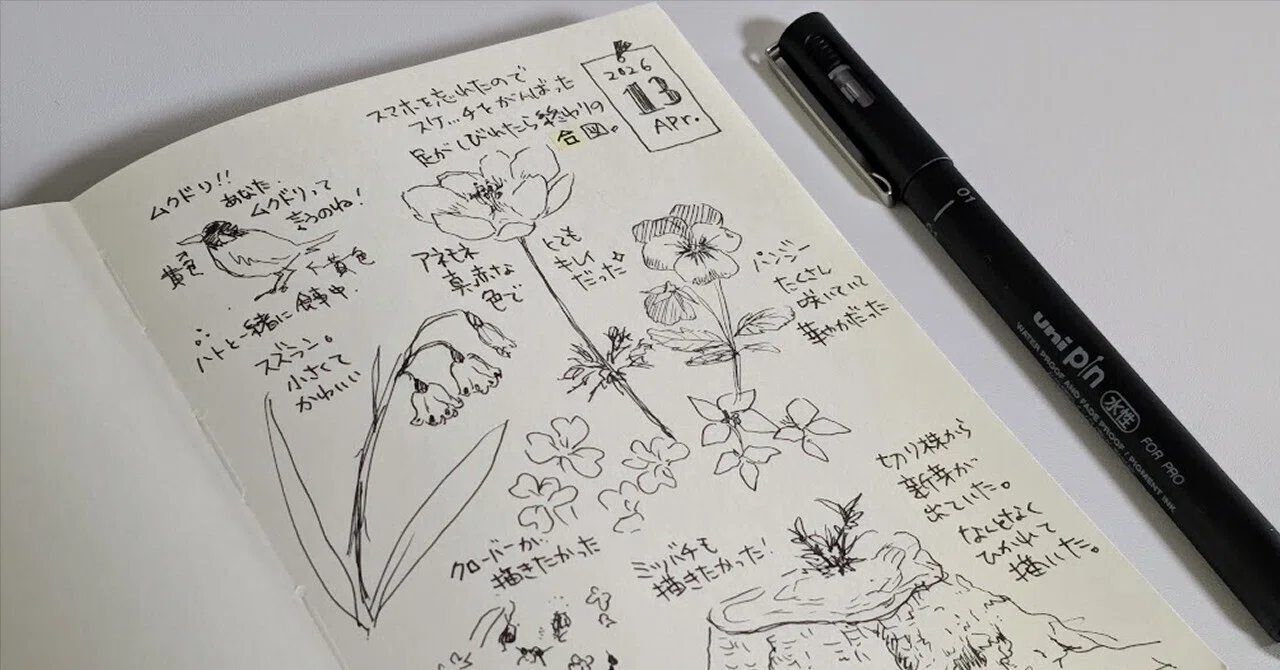 スマホを忘れたので
スケッチをがんばった
足がしびれたら終わりの
合図。
2026
13
APr.
ムクドリ!!
あなた、
ムクドリって
言うのね!
黄色
黄色
食事中
ハトと一緒に
スズラン。
小さくて
かわいい
アネモネ
真赤な
色で
とても
キレイ
だった
パンジー
たくさん
咲いていて
華やかだった
クローバーが
描きたかった
ミツバチも
描きたかった!
切り株から
新芽が
出ていた。
なんとなく
ひかれて
描いた。
01
uni pin
水性
FOR PRO
WATER PROOF AND FADE PROOF / PIGMENT INK